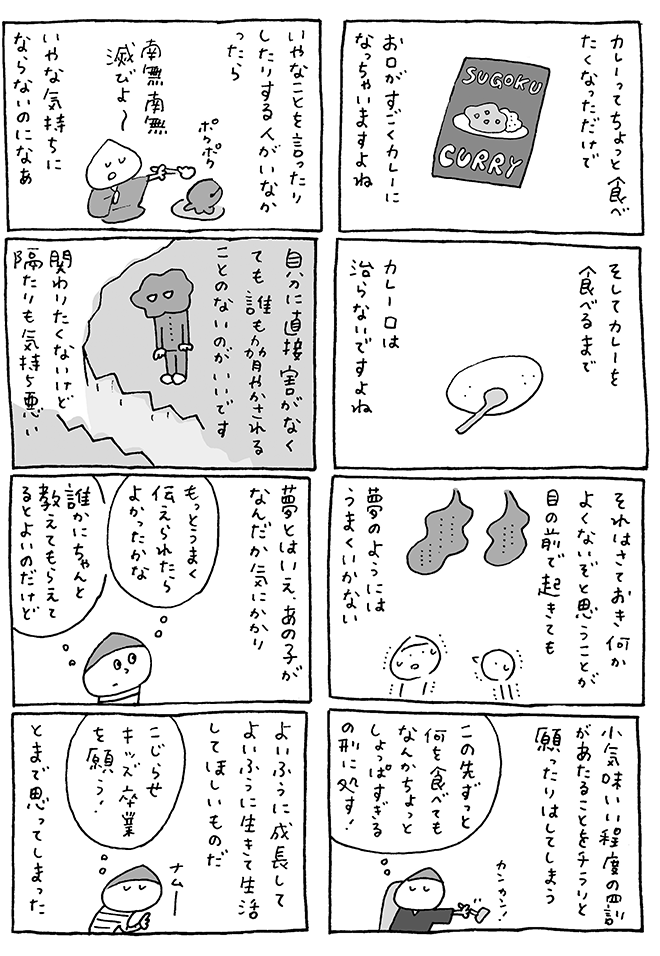 カレーってちょっと食べ
たくなっただけで
SUGOKU
CURRY
お口がすごくカレーに
なっちゃいますよね
そしてカレーを
食べるまで
カレー口は
治らないですよね
それはさておき何か
よくないぞと思うことが
目の前で起きても
夢のようには
うまくいかない
小気味いい程度の罰
があたることをチラリと
願ったりはしてしまう
この先ずっと
何を食べても
なんかちょっと
しょっぱすぎる
の刑に処す!
カンカン!
いやなことを言ったり
したりする人がいなか
ったら
南無南無
滅びよ〜
ポクポク
いやな気持ちに
ならないのになあ
自分に直接害がなく
ても誰も脅やかされる
ことのないのがいいです
関わりたくないけど
隔たりも気持ち悪い
夢とはいえ、あの子が
なんだか気にかかり
もっとうまく
伝えられたら
よかったかな
誰かにちゃんと
教えてもらえて
るとよいのだけど
よいふうに成長して
よいふうに生きて生活
してほしいものだ
こじらせ
キッズ卒業
を願う!
ナムー
とまで思ってしまった